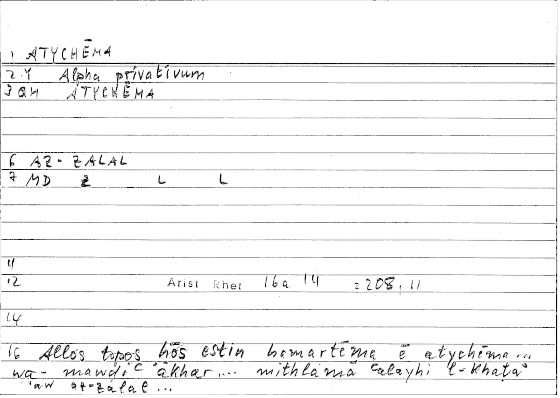 1 ATYCHĒMA
2 Y Alpha privativum
3 QM ATYCHĒMA
6 AZ-ZALAL
7 MD Z L L
11
12 Arist Rhet 16a 14 = 208,11
14
16 Allos topos hōs estin hamartēma ē atychēma...
wa-mawḍiʿ ʾākhar... mithlamā ʿalayhi l-khaṭaʾ
ʾaw az-zalal...